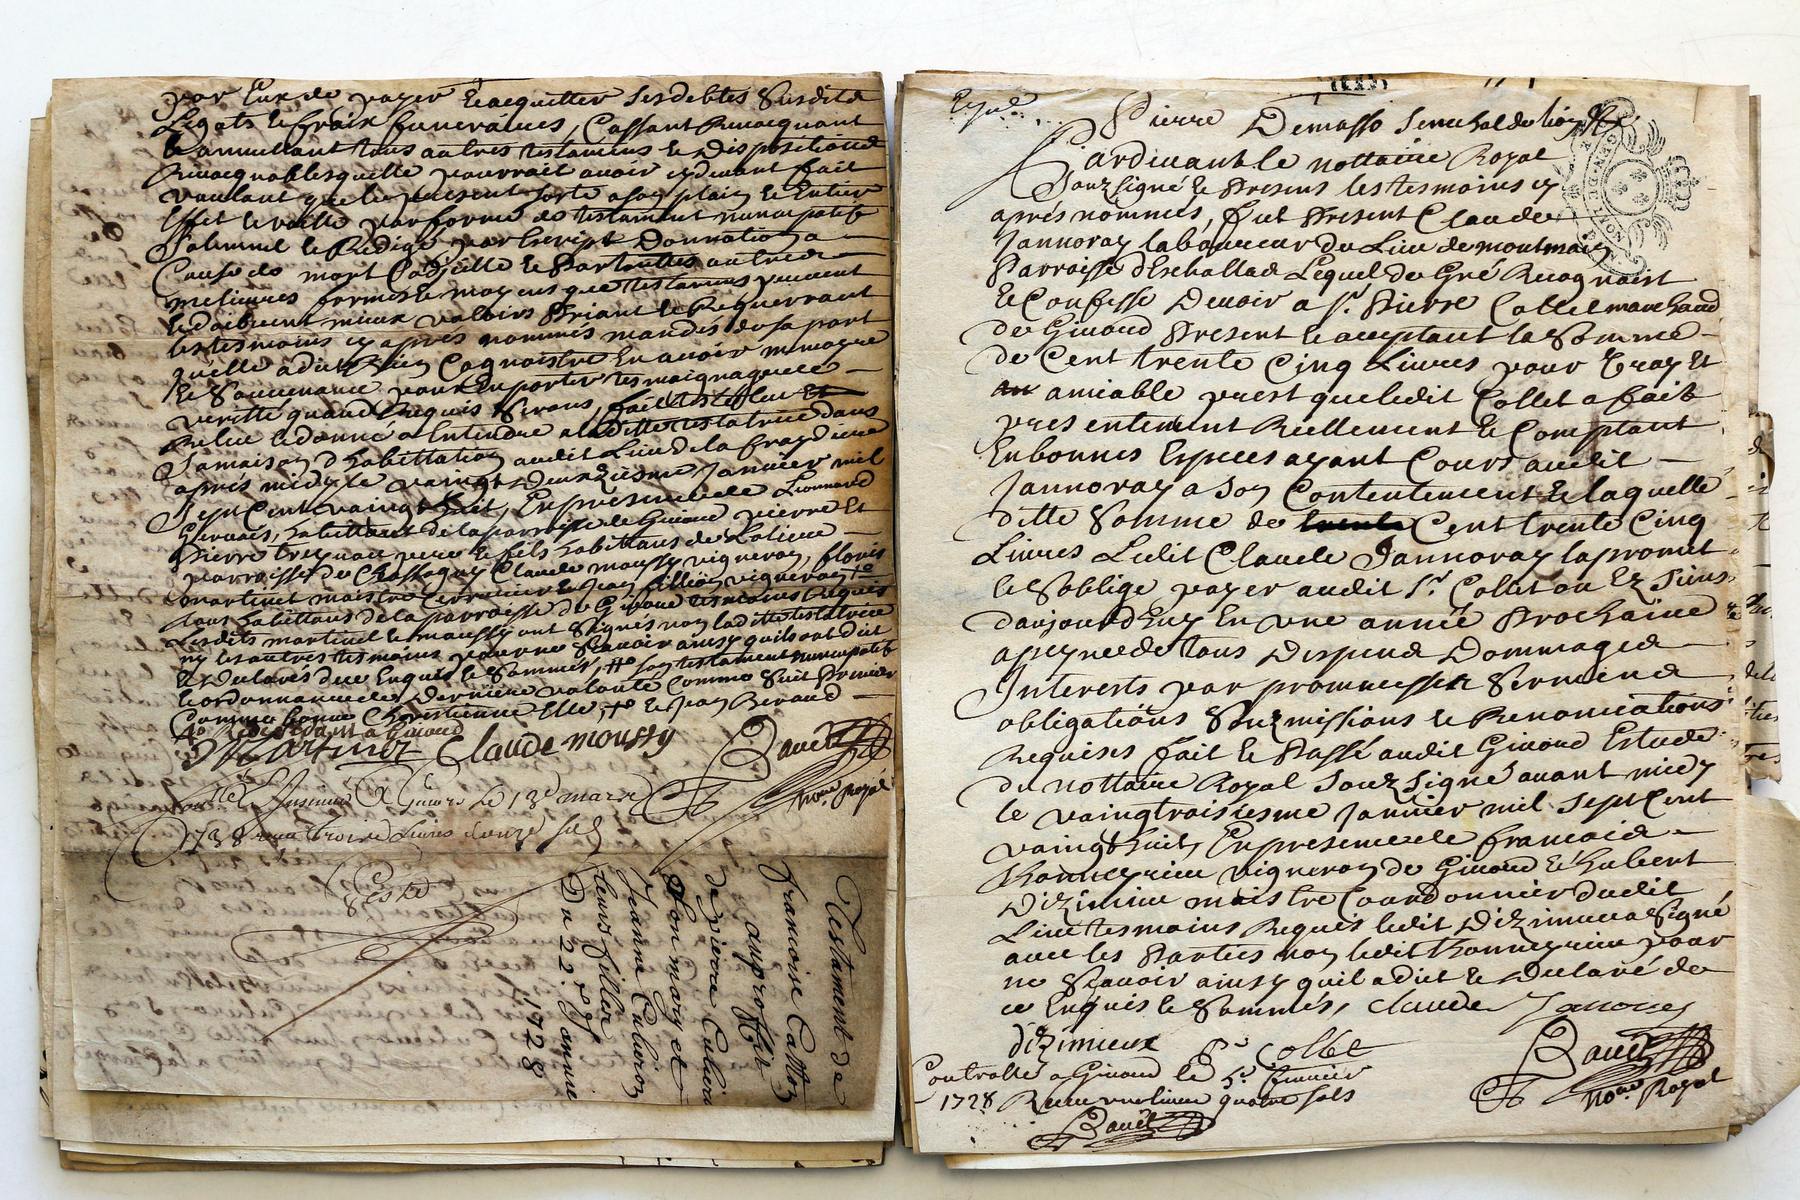 par Eux de payer & acquitter ses debtes Susdits
Legats & fraix funeraires, Cassant Revocquant
& annullant tous autres testamens & dispositions
Revocquables quelle pourrait avoir cydevant fait
voulant que le present sorte a son plain & Entier
Effet & vaille par forme de testament nuncupatif
Solennel & Redigé par Escript Donnation a
Cause de mort Codicille & par toutes autres
melieures formes & moyens que testamens peuvent
& doibvent mieux valoir Priant & Requerrant
les tesmoins cy après nommés mandés de sa part
quelle a dit Bien Cognoistre En avoir memoyre
& Souvenance pour En porter tesmoignage de
veritté quand Requis Seront, fait
Releu & donné a Entendre a laditte testatrice dans
Sa maison d'habittation audit Lieu de la
après midy le vaingt deuxiesme Janvier mil
Sept Cent vaingt huit, En presence de Lionnard
Gervais, habittant de la parroisse de Givord pierre Et
Pierre pere & fils habittans de
parroisse de Chassagny Claude moussy vigneron, fleury
martinet maistre & Jean vigneron
tous habittans de la parroisse de Givord tesmoins Requis
Lesdits martinet & moussy ont Signés non laditte testatrice
ny les autres tesmoins pour ne Scavoir ainsy quils ont dit
& Declaré de ce Enquis & Sommés, son testament nuncupatif
& ordonnance de derniere volonté Comme Suit Premier
Comme bonne Chrestienne Elle, & Jean Beraud
Martinet Claude moussy Bauet
no.re Royal
Givors Le 13e mars
1738 Livres douze sols
Testament de
francoise
au proffit
de pierre
Son mary et
Jeanne
leurs filles
Du 22e Janvier
1728
Pierre Demasso Senechal de lion
Pardevant le nottaire Royal
Souz Signé & Presens les tesmoins cy
après nommés, fut Present Claude
Jannoray laboureur du Lieu de montmain
Parroisse dEschallad Lequel de Gré Recognoit
& Confesse Devoir a Sr. Pierre Collet marchand
de Givord Present & acceptant la Somme
de Cent trente Cinq Livres pour vray Et
amiable prest que ledit Collet a fait
presentement Reellement & Comptant
En bonnes Especes ayant Cours audit
Jannoray a Son Contentement & laquelle
ditte Somme de Cent trente Cinq
Livres Ledit Claude Jannoray la promet
& Soblige payer audit Sr. Collet ou Ez Siens
daujourdhuy En une année Prochaine
a peyne de tous Despend Dommages
Interests par promesses & Serment
obligations Souzmissions & Renonciations
Requises fait & Passé audit Givord Estude
du nottaire Royal Souz Signé avant midy
le vaingtroisiesme Janvier mil Sept Cent
vaingt huit, En presence de francois
vigneron de Givord & hubert
Dizimieu maistre Courdonnier dudit
Lieu tesmoins Requis ledit Dizimieu a Signé
avec les Parties non ledit pour
ne Scavoir ainsy quil a dit & Declaré de
ce Enquis & Sommés, Claude Janoray
dizimieux Pre Collet Bauet
no.re Royal
Controllé a Givord le 5e fevrier
1728 Receu une livre quatre sols
Bauet